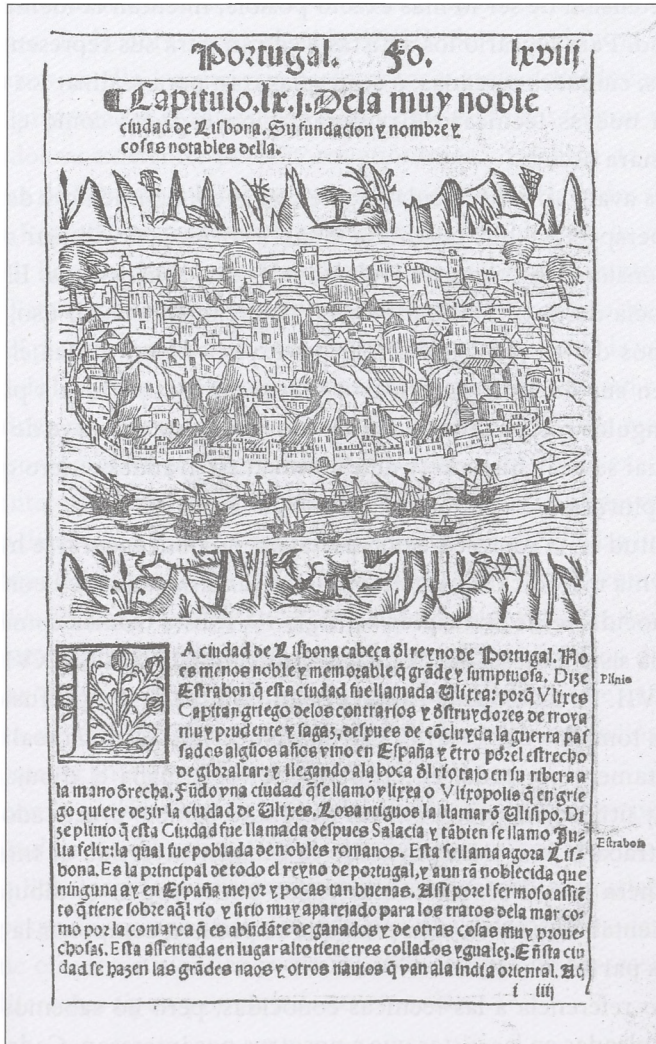 Portugal. Fo. lxviij
Capitulo.lx.j.Dela muy noble
ciudad de Lisbona.Su fundacion y nombre y
cosas notables della.
LA ciudad de Lisbona cabeça ðl reyno de Portugal. No
es menos noble y memorable q̃ grãde y sumptuosa. Dize
Estrabon q̃ esta ciudad fue llamada Ulixea: porq̃ Vlixes
Capitan griego delos contrarios y ðstruydores de troya
muy prudente y sagaz, despues de cõcluyda la guerra pas
sados algũos años vino en España y ẽtro por el estrecho
de gibraltar: y llegando a la boca ðl rio tajo en su ribera a
la mano ðrecha. Fũdo vna ciudad q̃ se llamo vlixea o Vlixopolis q̃ en grie
go quiere dezir la ciudad de Ulixes. Los antiguos la llamarõ Ulisipo. Di
ze plinio q̃ esta Ciudad fue llamada despues Salacia y tãbien se llamo Ju
lia felix: la qual fue poblada de nobles romanos. Esta se llama agora Lis-
bona. Es la principal de todo el reyno de portugal, y aun tã noblecida que
ninguna ay en España mejor y pocas tan buenas. Assi por el fermoso assiẽ
to q̃ tiene sobre aq̃l rio y sitio muy aparejado para los tratos dela mar co-
mo por la comarca q̃ es abũdãte de ganados y de otras cosas muy proue-
chosas. Esta assentada en lugar alto tiene tres collados yguales. E ẽ sta ciu
dad se hazen las grãdes naos y otros nauios q̃ van ala india oriental. Aq
i iiij
Plinio
Estrabon